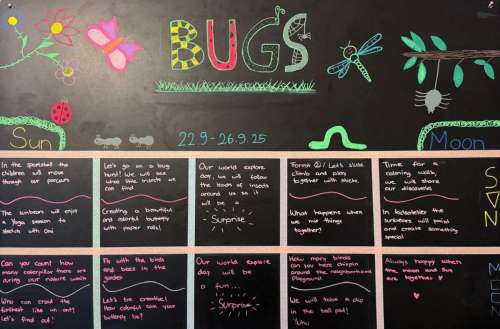 BUGS
Sun
22.9-26.9.25
Moon
In the sportshall the
children will move
through our parcours
The sunbears will enjoy
a Yoga session to
stretch with Oni
Let's go on a bug
hunt! We will see
what little insects we
can find
Creating a beautiful
and colorful butterfly
with paper rolls!
Our world explore
day, we will follow
the leads of insects
around us so it
will be a
Surprise
Forest Let's slide
climb and play
together with sticks.
What happens when
we mix things
together?
Time for a
calming walk,
we will share
our discoveries
In kidsatelier the
sunbears will paint
and create something
special
SUN
Can you count how
many caterpillar there are
during our nature walk
Who can crawl the
farthest like an ant?
Let's find out!
Fly with the birds
and bees in the
garden
Let's be creative!
How colorful can your
butterfly be?
Our world explore
day will be
a fun...
Surprise
How many birds
can you hear chirpin
around the neighborhood
playground
We will have a dip
in the ball pit
Yuhu!
Always happy when
the moon and sun
are together ♥